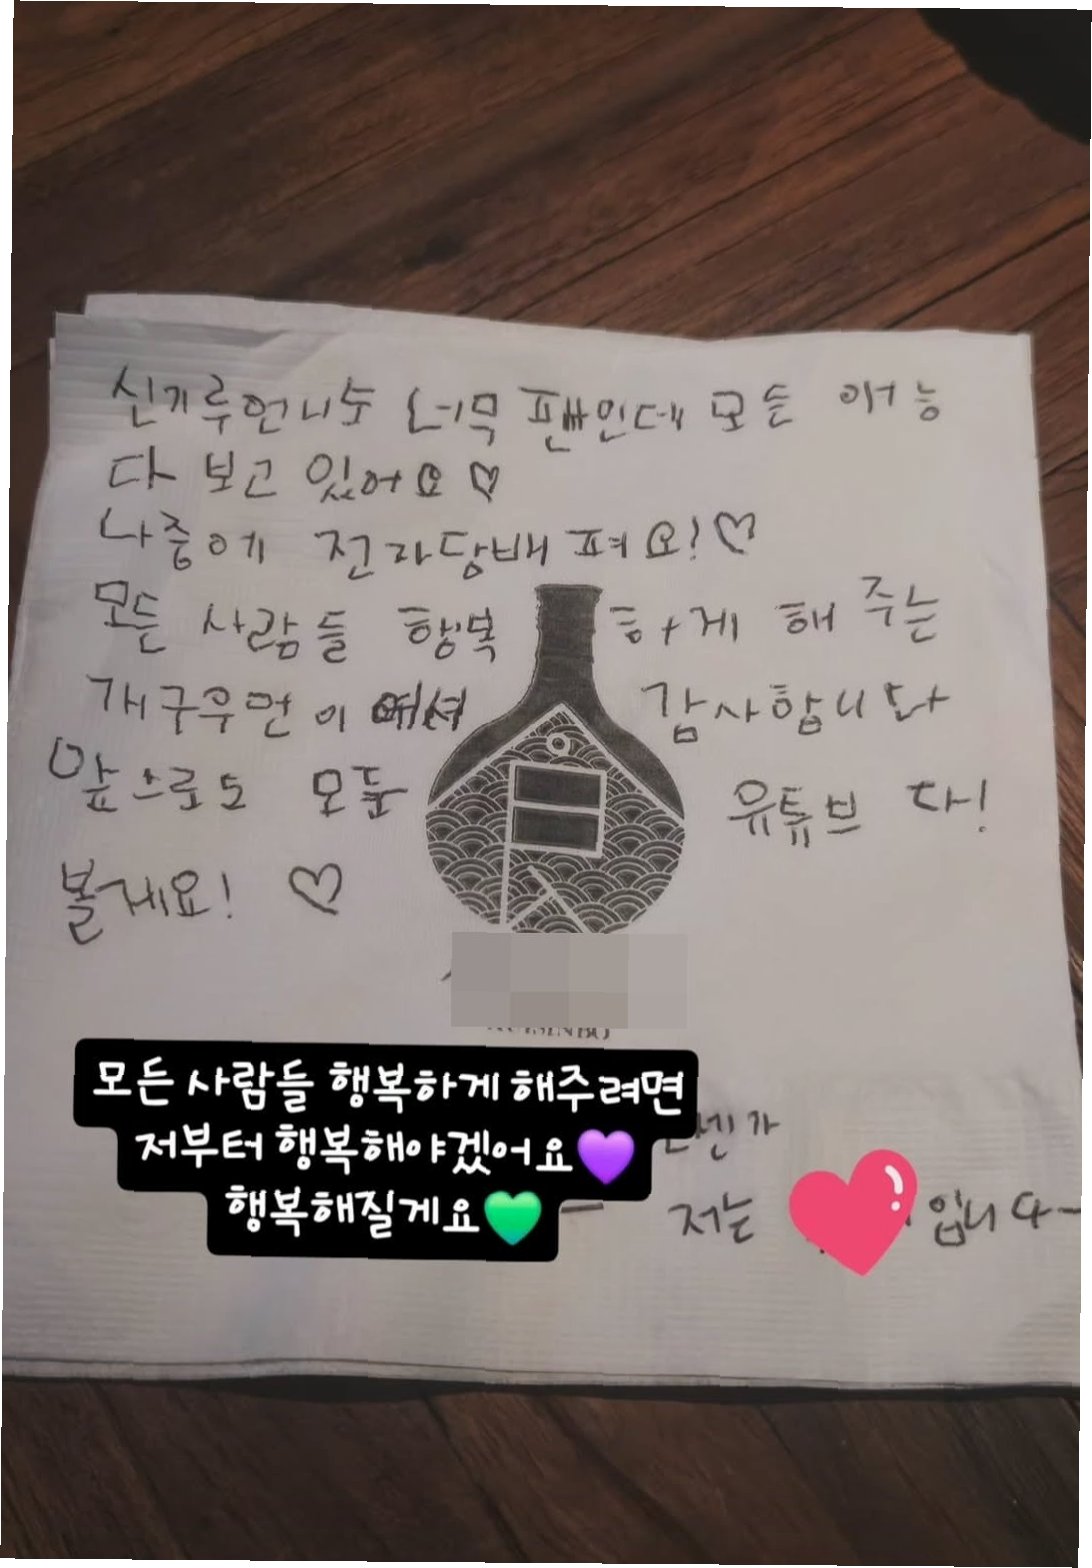 신기루언니도 너무 팬인데 모든 예능
다 보고 있어요♡
나중에 전자담배 펴요!♡
모든 사람들 행복하게 해 주는
개구우먼이여셔 감사합니다
앞으로도 모든 유튜브 다!
볼게요! ♡
모든 사람들 행복하게 해주려면
저부터 행복해야겠어요💜
행복해질게요💚
저는 입니다